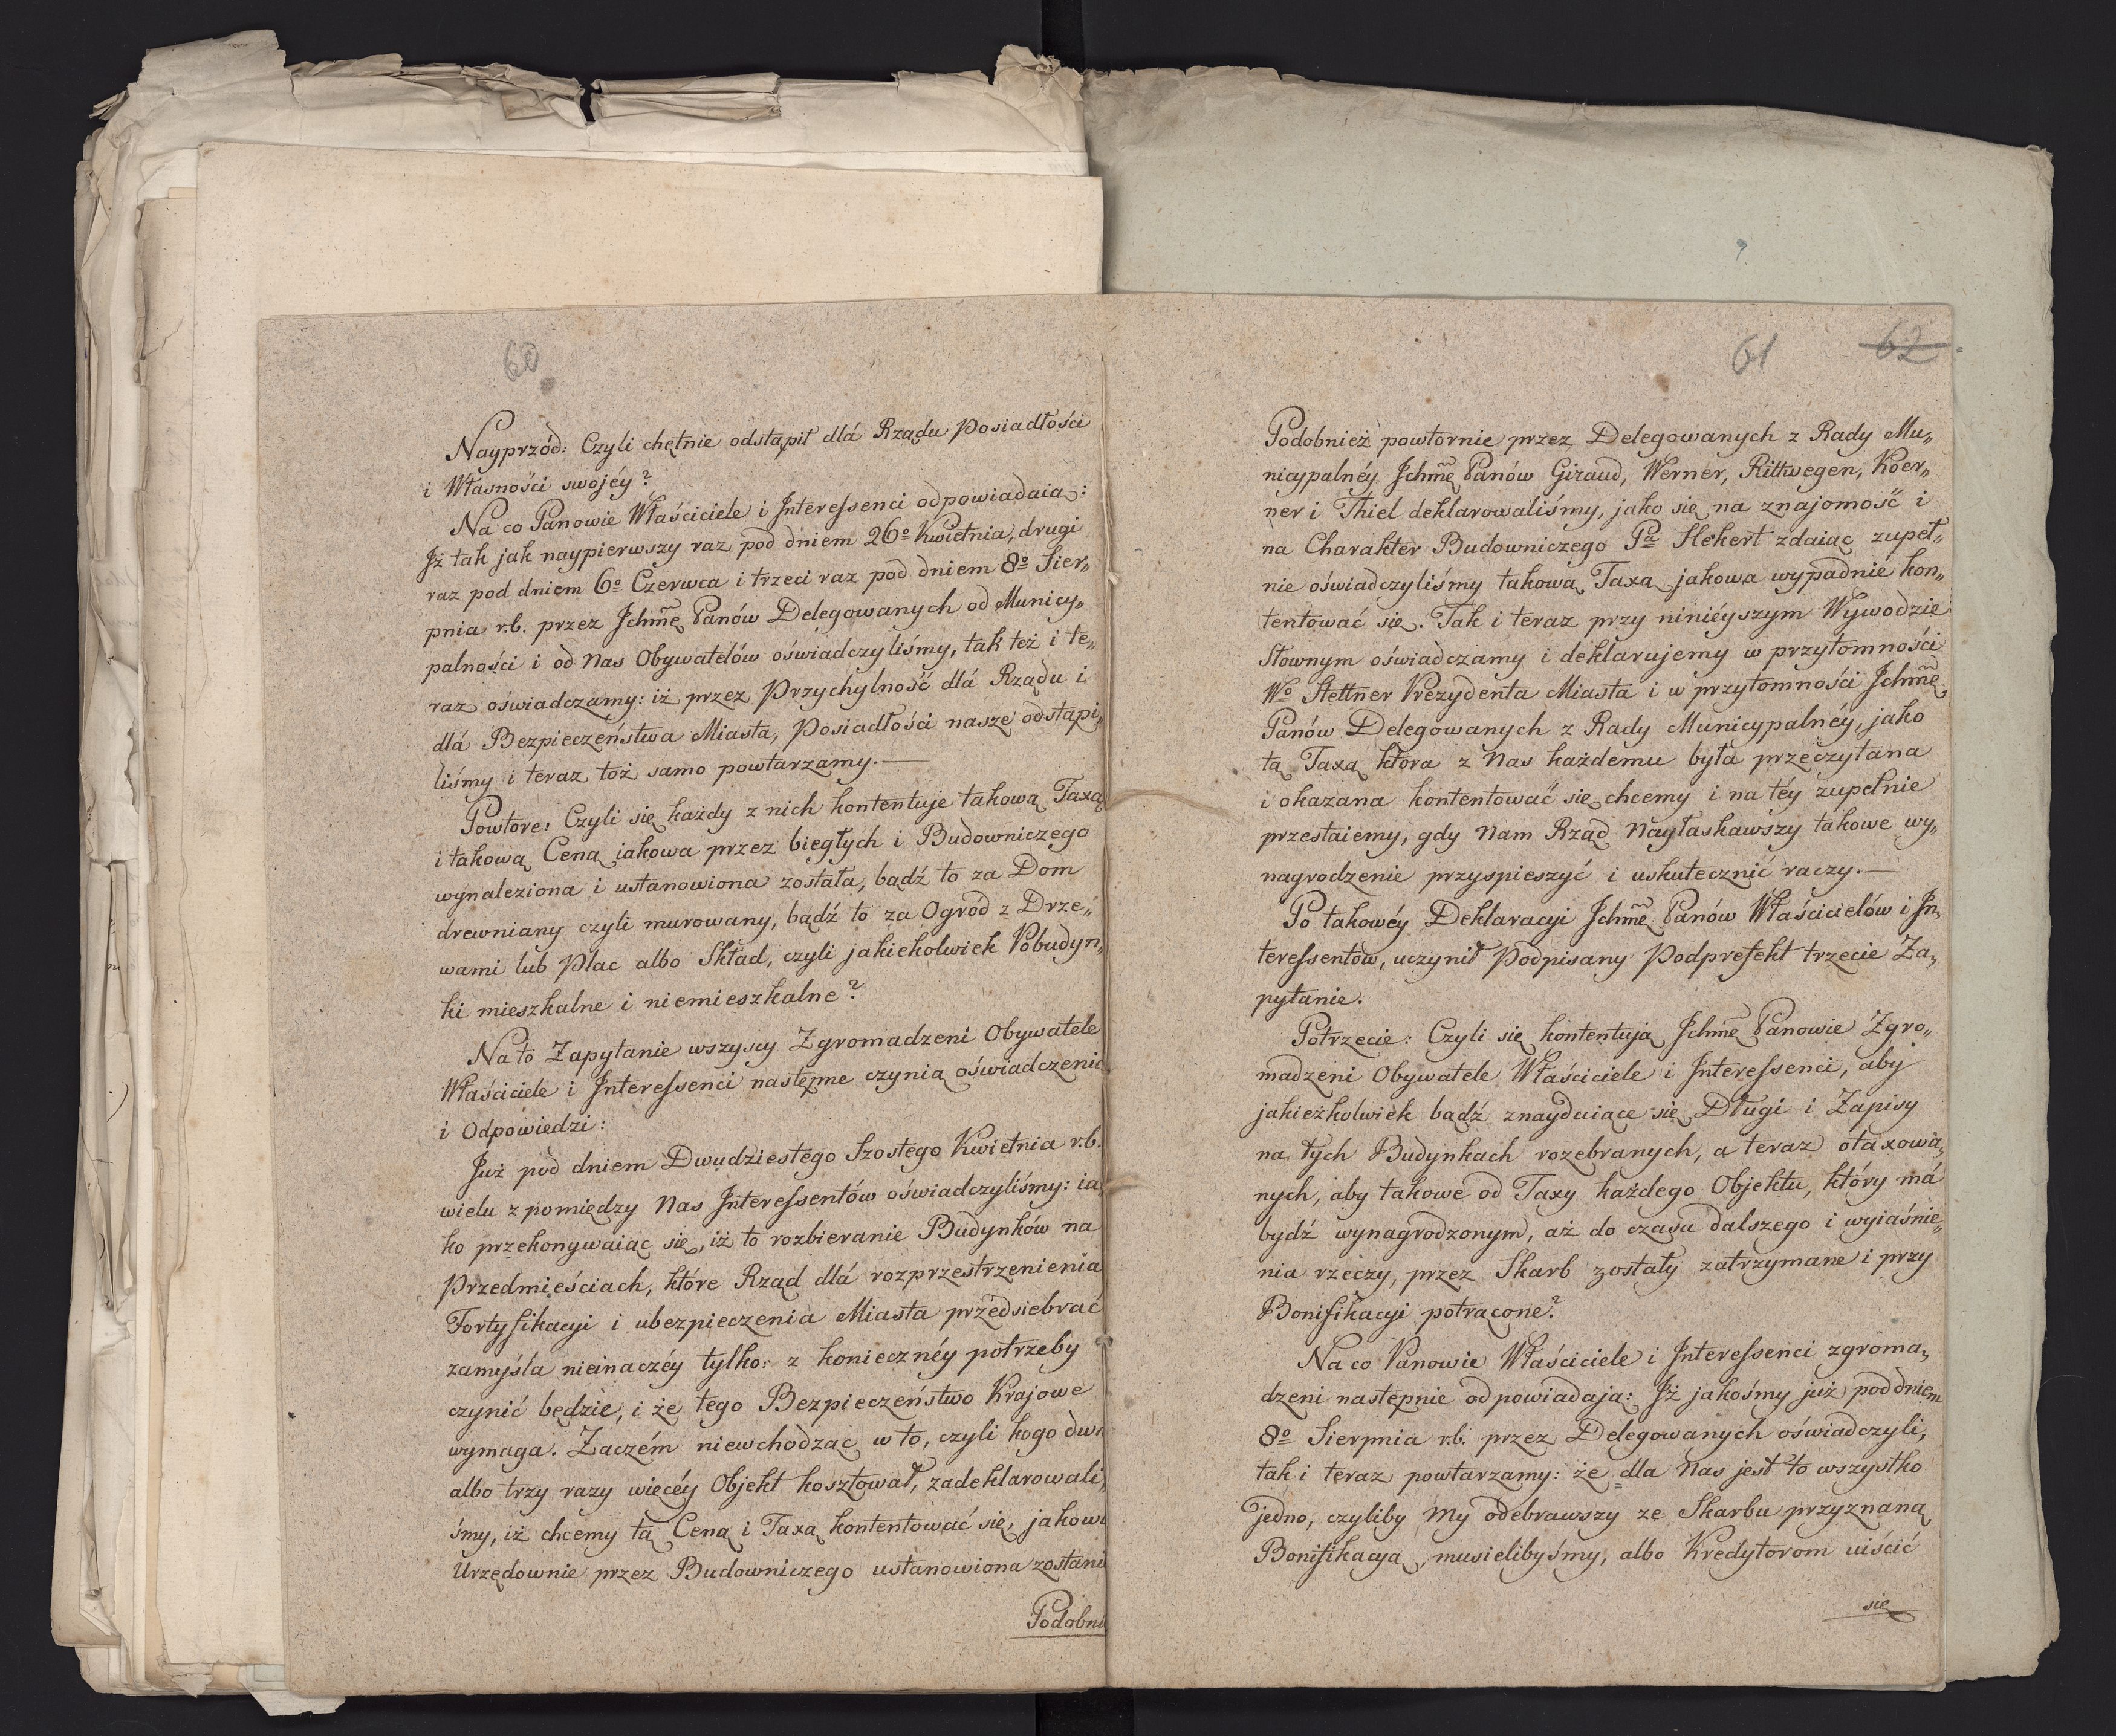 60
Nayprzód: Czyli chętnie odstąpił dlá Rządu Posiadłości
i Własności swojéy?
Na co Panowie Właściciele i Interessenci odpowiadaią:
Jż tak jak naypierwszy raz pod dniem 26º Kwietnia, drugi
raz pod dniem 6º Czerwca i trzeci raz pod dniem 8º Sier„
pnia r.b. przez Jchmę Panów Delegowanych od Municy„
palności i od Nas Obywatelów oświadczyliśmy, tak też i te„
raz oświadczamy: iż przez Przychylność dlá Rządu i
dlá Bezpieczeństwa Miasta, Posiadłości nasze odstąpi„
liśmy i teraz toż samo powtarzamy.—
Powtore: Czyli się każdy z nich kontentuje takową Taxą
i takową Ceną iakowa przez biegłych i Budowniczego
wynaleziona i ustanowiona została, bądź to za Dom
drewniany czyli murowany, bądź to za Ogród z Drze„
wami lub Plac albo Skład, czyli jakiekolwiek Pobudyn„
ki mieszkalne i niemieszkalne?
Na to Zapytanie wszyscy Zgromadzeni Obywatele
Właściciele i Interessenci następne czynią oświadczenie
i Odpowiedzi:
Już pod dniem Dwudziestego Szostego Kwietnia r.b.
wielu z pomiędzy Nas Interessentów oświadczyliśmy: ia„
ko przekonywaiąc się, iż to rozbieranie Budynków na
Przedmieściach, które Rząd dlá rozprzestrzenienia
Fortyfikacyi i ubezpieczenia Miasta przedsiebrać
zamyśla nieinaczéy tylko: z koniecznéy potrzeby
czynić będzie, i że tego Bezpieczeństwo Krajowe
wymaga. Zaczém niewchodząc w to, czyli kogo dwa
albo trzy razy więcéy Objekt kosztował, zadeklarowali„
śmy, iż chcemy tą Ceną i Taxą kontentować się, jakowa
Urzędownie przez Budowniczego ustanowiona zostani
Podobni
61 62
Podobnież powtornie przez Delegowanych z Rady Mu„
nicypalnéy Jchmę Panów Giraud, Werner, Rittwegen, Koer„
ner i Thiel deklarowaliśmy, jako się na znajomość i
na Charakter Budowniczego Pª Hekert zdaiąc zupeł„
nie oświadczyliśmy takową Taxą jakowa wypadnie kon„
tentować się. Tak i teraz przy niniéyszym Wywodzie
Słownym oświadczamy i deklarujemy w przytomności
Wº Stettner Prezydenta Miasta i w przytomności Jchmę
Panów Delegowanych z Rady Municypalnéy, jako
tą Taxą która z Nas każdemu była przeczytana
i okazana kontentować się chcemy i na téy zupełnie
przestaiemy, gdy Nam Rząd Nayłaskawszy takowe wy„
nagrodzenie przyspieszyć i uskutecznić raczy.—
Po takowéy Deklaracyi Jchmę Panów Właścicielów i In„
teressentów, uczynił Podpisany Podprefekt trzecie Za„
pytanie.
Potrzecie: Czyli się kontentują Jchmę Panowie Zgro„
madzeni Obywatele Właściciele i Interessenci, aby
jakieżkolwiek bądź znayduiące się Długi i Zapisy
na tych Budynkach rozebranych, a teraz otaxowa„
nych, aby takowe od Taxy każdego Objektu, który má
bydź wynagrodzonym, aż do czasu dalszego i wyiaśnie„
nia rzeczy, przez Skarb zostały zatrzymane i przy
Bonifikacyi potrącone?
Na co Panowie Właściciele i Interessenci zgroma„
dzeni następnie odpowiadają: Jż jakośmy już pod dniem
8º Sierpnia r.b. przez Delegowanych oświadczyli,
tak i teraz powtarzamy: że dla Nas jest to wszystko
jedno, czyliby My odebrawszy ze Skarbu przyznaną
Bonifikacyą, musielibyśmy, albo Kredytorom uiścić
się